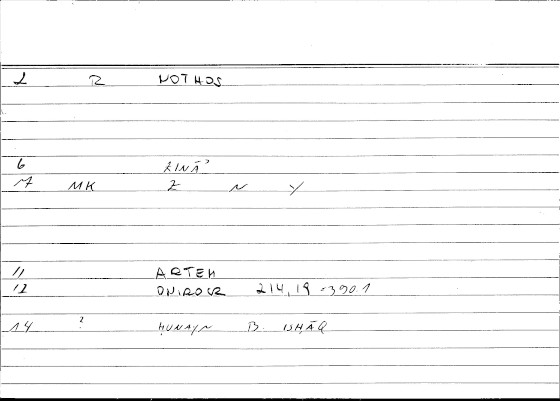 2 R NOTHOS
6 ZINĀʾ
7 MK Z N Y
11 ARTEM
12 ONIROCR 214,19 = 390.1
14 ? ḤUNAYN B. ISḤĀQ